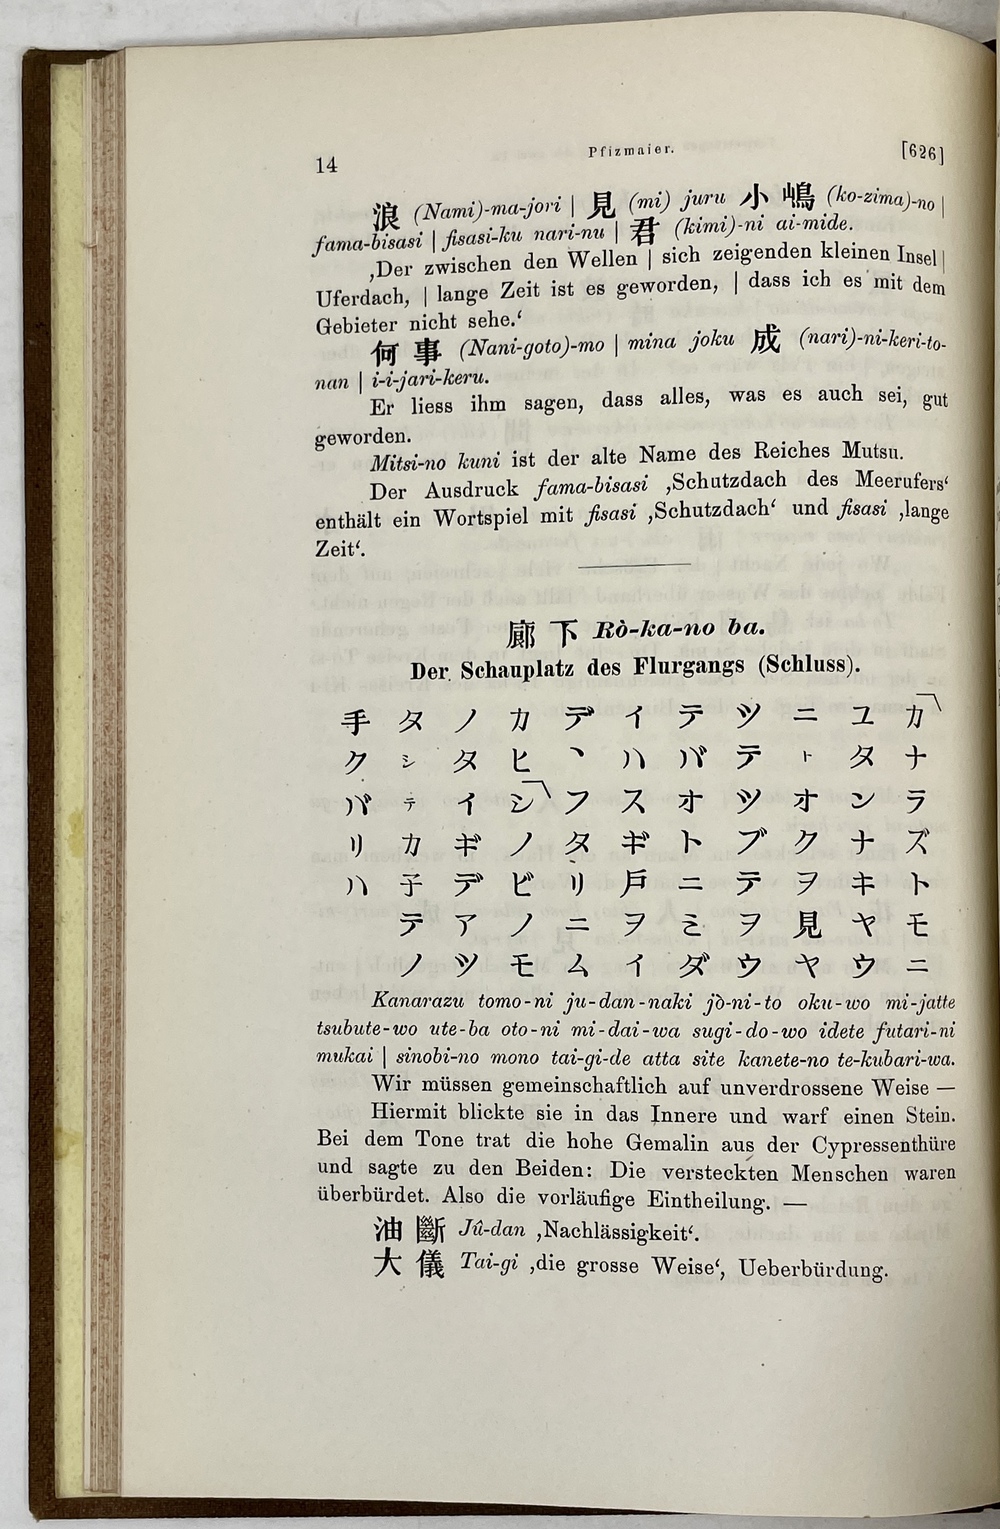 14 Pfizmaier. [626]
浪 (Nami)-ma-jori | 見 (mi) juru 小 嶋 (ko-zima)-no |
fama-bisasi | fisasi-ku nari-nu | 君 (kimi)-ni ai-mide.
‚Der zwischen den Wellen | sich zeigenden kleinen Insel |
Uferdach, | lange Zeit ist es geworden, | dass ich es mit dem
Gebieter nicht sehe.‘
何 事 (Nani-goto)-mo | mina joku 成 (nari)-ni-keri-to-
nan | i-i-jari-keru.
Er liess ihm sagen, dass alles, was es auch sei, gut
geworden.
Mitsi-no kuni ist der alte Name des Reiches Mutsu.
Der Ausdruck fama-bisasi ‚Schutzdach des Meerufers‘
enthält ein Wortspiel mit fisasi ‚Schutzdach‘ und fisasi ‚lange
Zeit‘.
廊 下 Rò-ka-no ba.
Der Schauplatz des Flurgangs (Schluss).
﹁カナラズトモニ
ユタンナキヤウ
ニトオクヲ見ヤ
ツテツブテヲウ
テバオトニミダ
イハスギ戸ヲイ
デヽフタリニム
カヒ﹁シノビノモ
ノタイギデアツ
タシテカ子テノ
手クバリハ
Kanarazu tomo-ni ju-dan-naki jò-ni-to oku-wo mi-jatte
tsubute-wo ute-ba oto-ni mi-dai-wa sugi-do-wo idete futari-ni
mukai | sinobi-no mono tai-gi-de atta site kanete-no te-kubari-wa.
Wir müssen gemeinschaftlich auf unverdrossene Weise —
Hiermit blickte sie in das Innere und warf einen Stein.
Bei dem Tone trat die hohe Gemalin aus der Cypressenthüre
und sagte zu den Beiden: Die versteckten Menschen waren
überbürdet. Also die vorläufige Eintheilung. —
油 斷 Jû-dan ‚Nachlässigkeit‘.
大 儀 Tai-gi ‚die grosse Weise‘, Ueberbürdung.